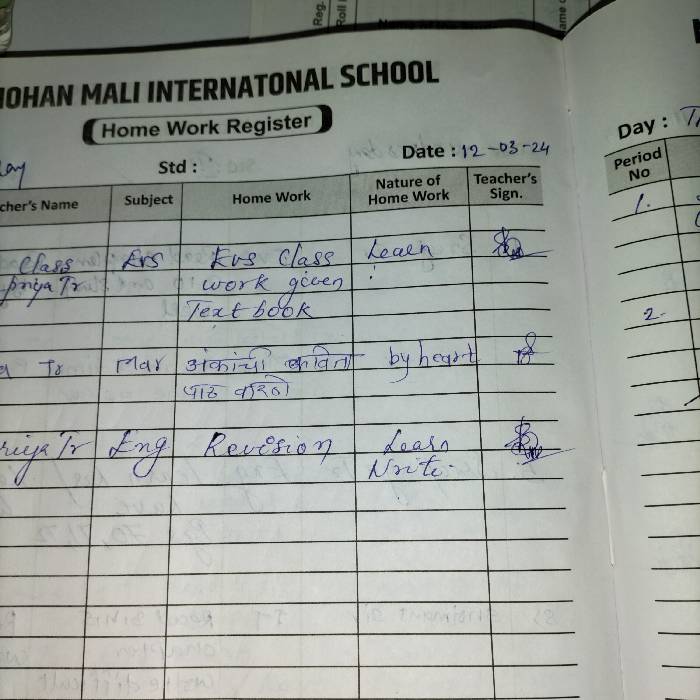 OHAN MALI INTERNATONAL SCHOOL
Home Work Register
ay Std : Date : 12-03-24
cher's Name Subject Home Work Nature of Home Work Teacher's Sign.
Class Evs Evs Class Learn
priya Tr work given
Text book
Tr Mar अंकांची कविता by heart
पाठ करणे
riya Tr Eng Revision Learn
Write.
Day : T
Period No
1.
2.
Reg.
Roll